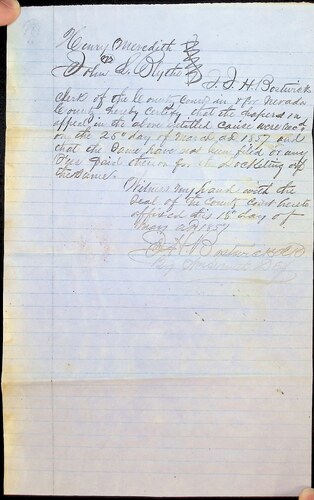 Henry Meredith
vs
John S. Blythe
I J. H. Bostwick
Clerk of the County Court in & for Nevada
County hereby Certify that the papers in
appeal in the above entitled cause were rec'd
on the 25th day of March AD 1857 and
that the same have not been filed or any
Fees paid therein for the docketing of
the same.
Witness my hand with the
Seal of the County Court hereto
affixed this 18th day of
May AD 1857
J. H. Bostwick Clk
By